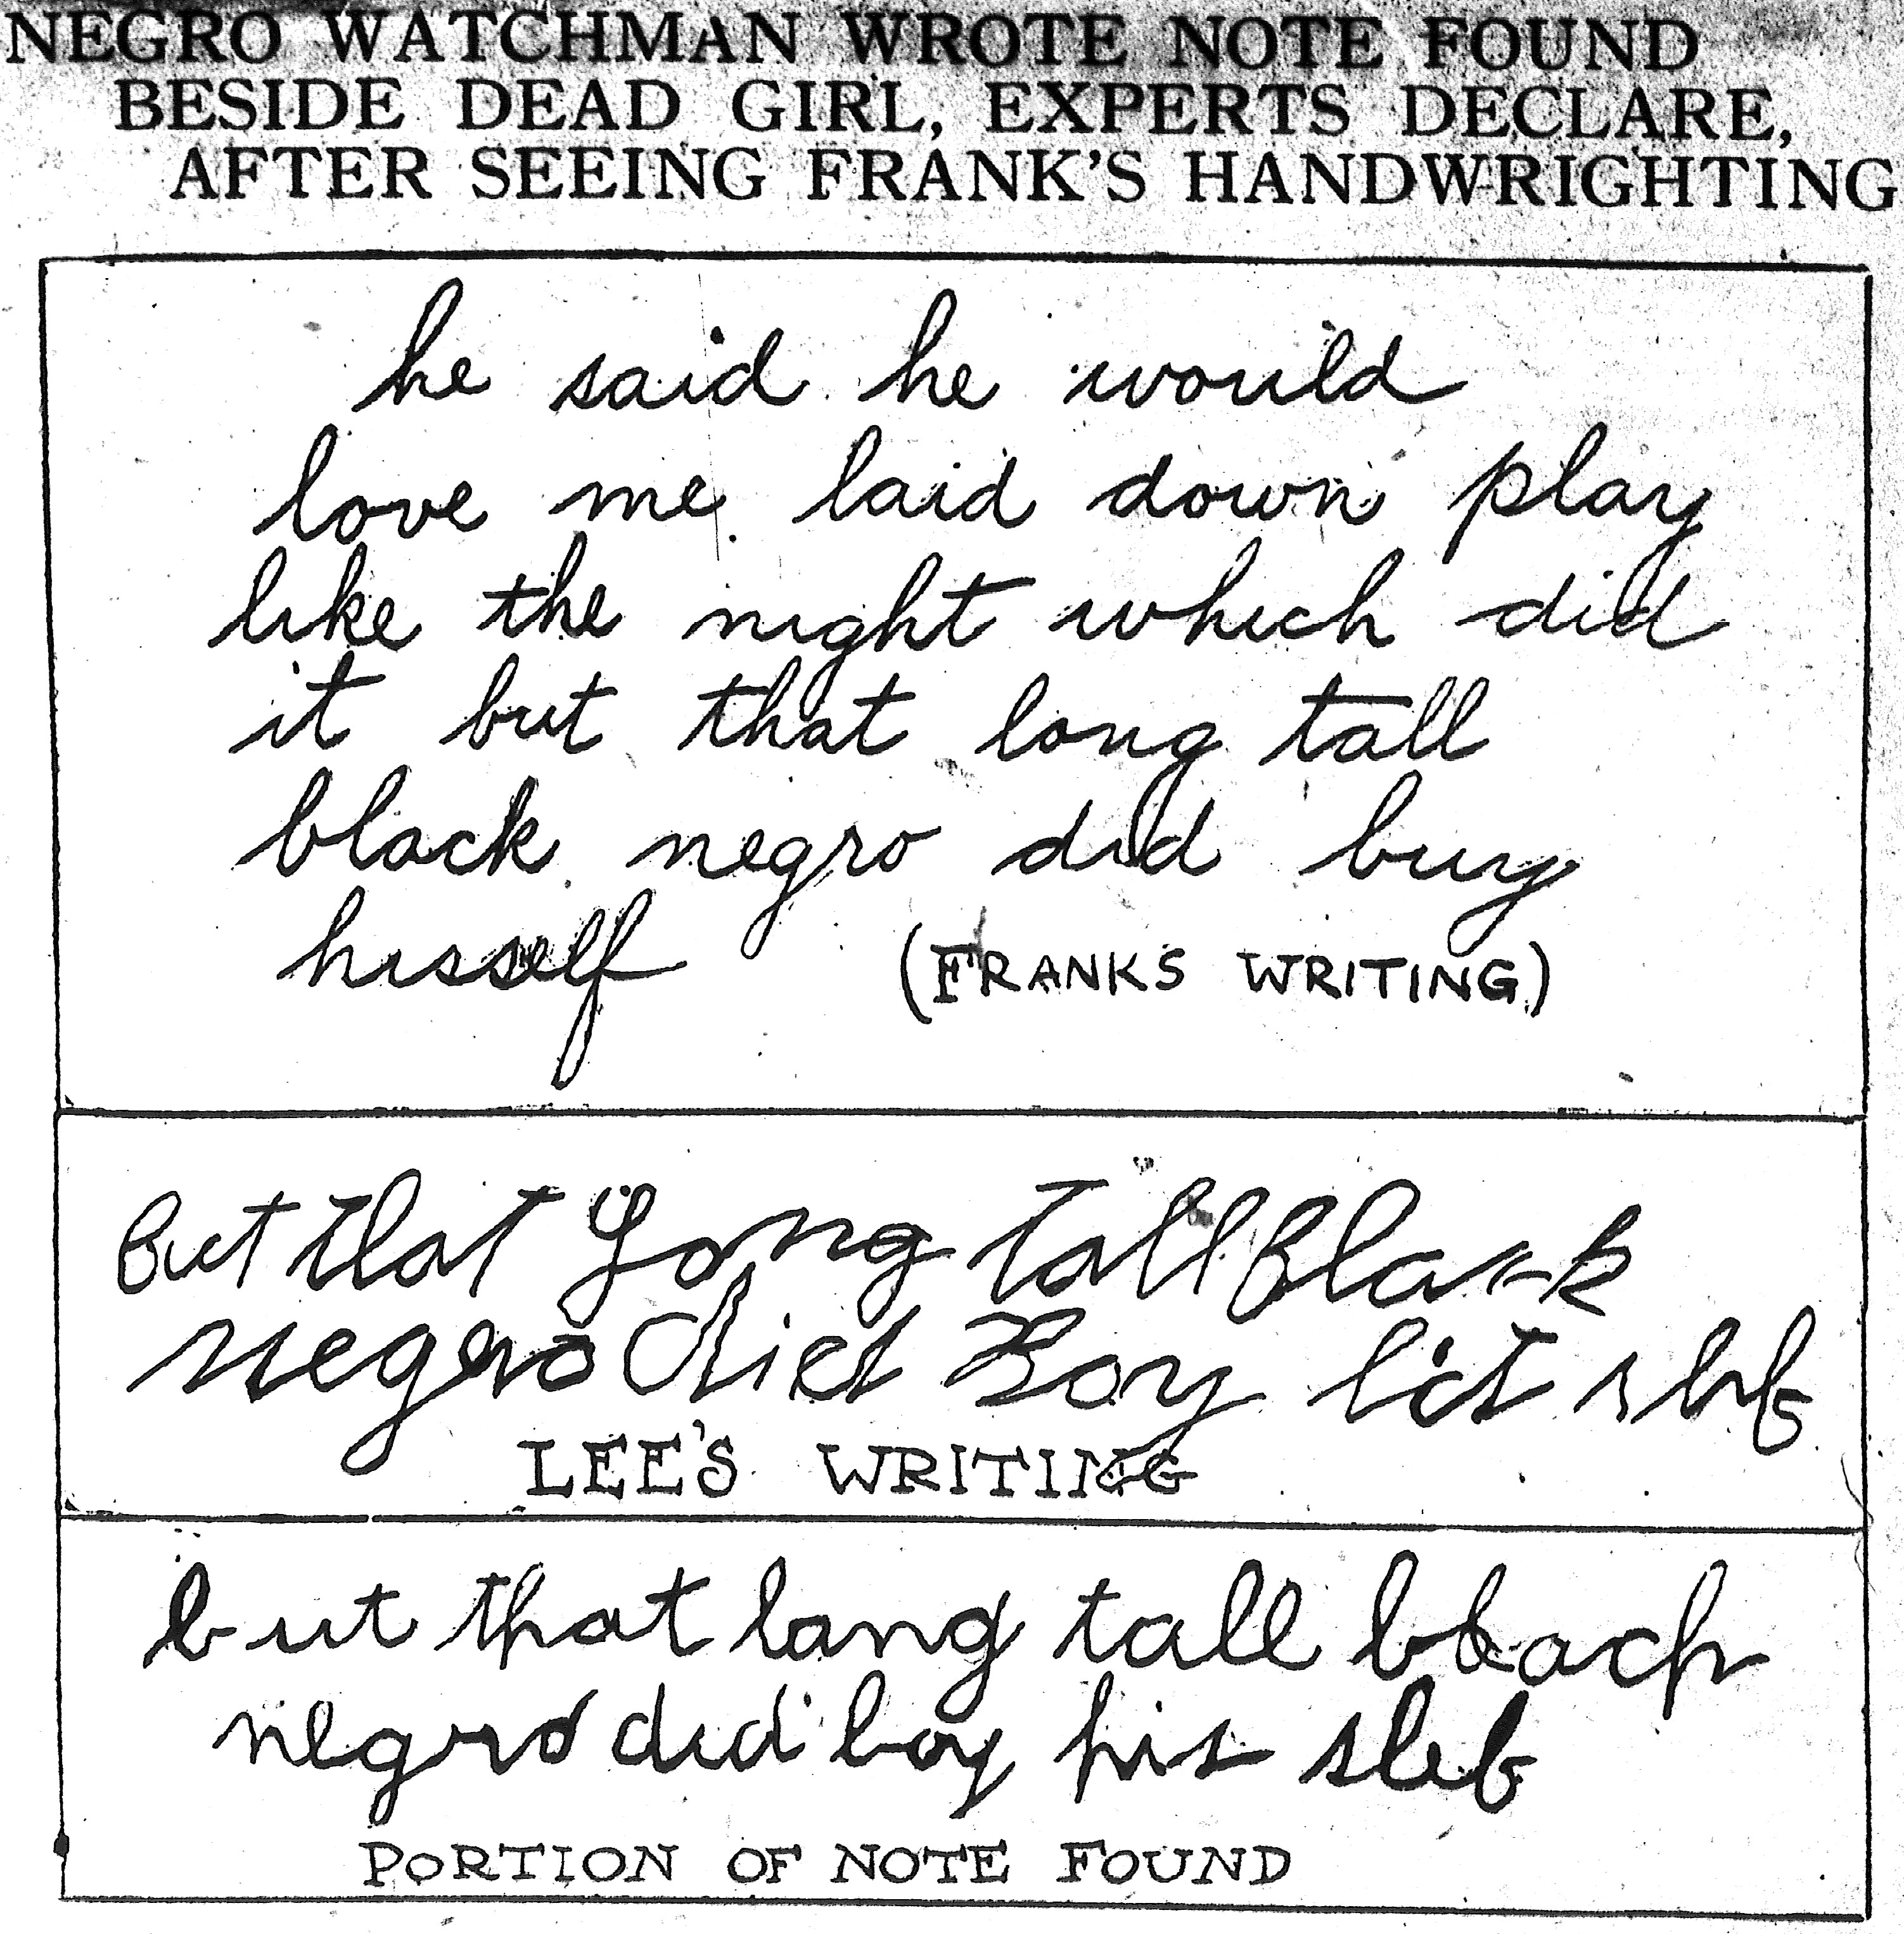 NEGRO WATCHMAN WROTE NOTE FOUND
BESIDE DEAD GIRL, EXPERTS DECLARE,
AFTER SEEING FRANK'S HANDWRIGHTING
he said he would
love me laid down play
like the night which did
it but that long tall
black negro did buy
hisself (FRANKS WRITING)
But that long tall Black
negro did Boy hit slef
LEE'S WRITING
but that lang tall black
negro did boy his slef
PORTION OF NOTE FOUND